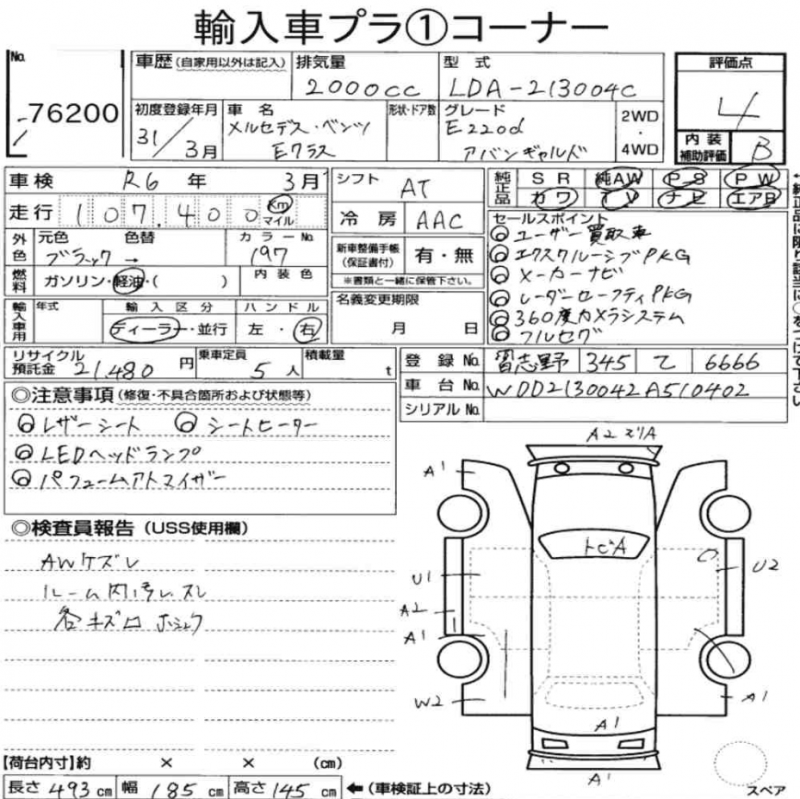 輸入車プラ①コーナー
No. 76200
車歴 (自家用以外は記入) 排気量 2000cc 型式 LDA-213004C 評価点 4
初度登録年月 31/3月 車名 メルセデス・ベンツ Eクラス 形状・ドア数 グレード E220d アバンギャルド 2WD・4WD 内装補助評価 B
車検 R6年 3月 シフト AT 純正品 SR 純AW PS PW
走行 107,400 km マイル 冷房 AAC カワ TV ナビ エアB
外色 元色 ブラック 色替 → カラーNo. 197 新車整備手帳(保証書付) 有・無 ※書類と一緒に保管下さい。
燃料 ガソリン・軽油・( ) 内装色
セールスポイント
◎ユーザー買取車
◎エクスクルーシブPKG
◎メーカーナビ
◎レーダーセーフティPKG
◎360度カメラシステム
◎フルセグ
輸入車用 年式 輸入区分 ディーラー・並行 ハンドル 左・右 名義変更期限 月 日
リサイクル預託金 21,480円 乗車定員 5人 積載量 t
登録No. 習志野 345 て 6666
車台No. WDD2130042A510402
シリアルNo.
◎注意事項 (修復・不具合箇所および状態等)
◎レザーシート ◎シートヒーター
◎LEDヘッドランプ
◎パフュームアトマイザー
◎検査員報告 (USS使用欄)
AWケズレ
ルーム内汚レスレ
各キズ
A2 スリA
A1 A1
トビA
U1 U2
A2
A1
W2 A1
A1
A1
【荷台内寸】約 × × (cm)
長さ 493cm 幅 185cm 高さ 145cm ←(車検証上の寸法)
スペア